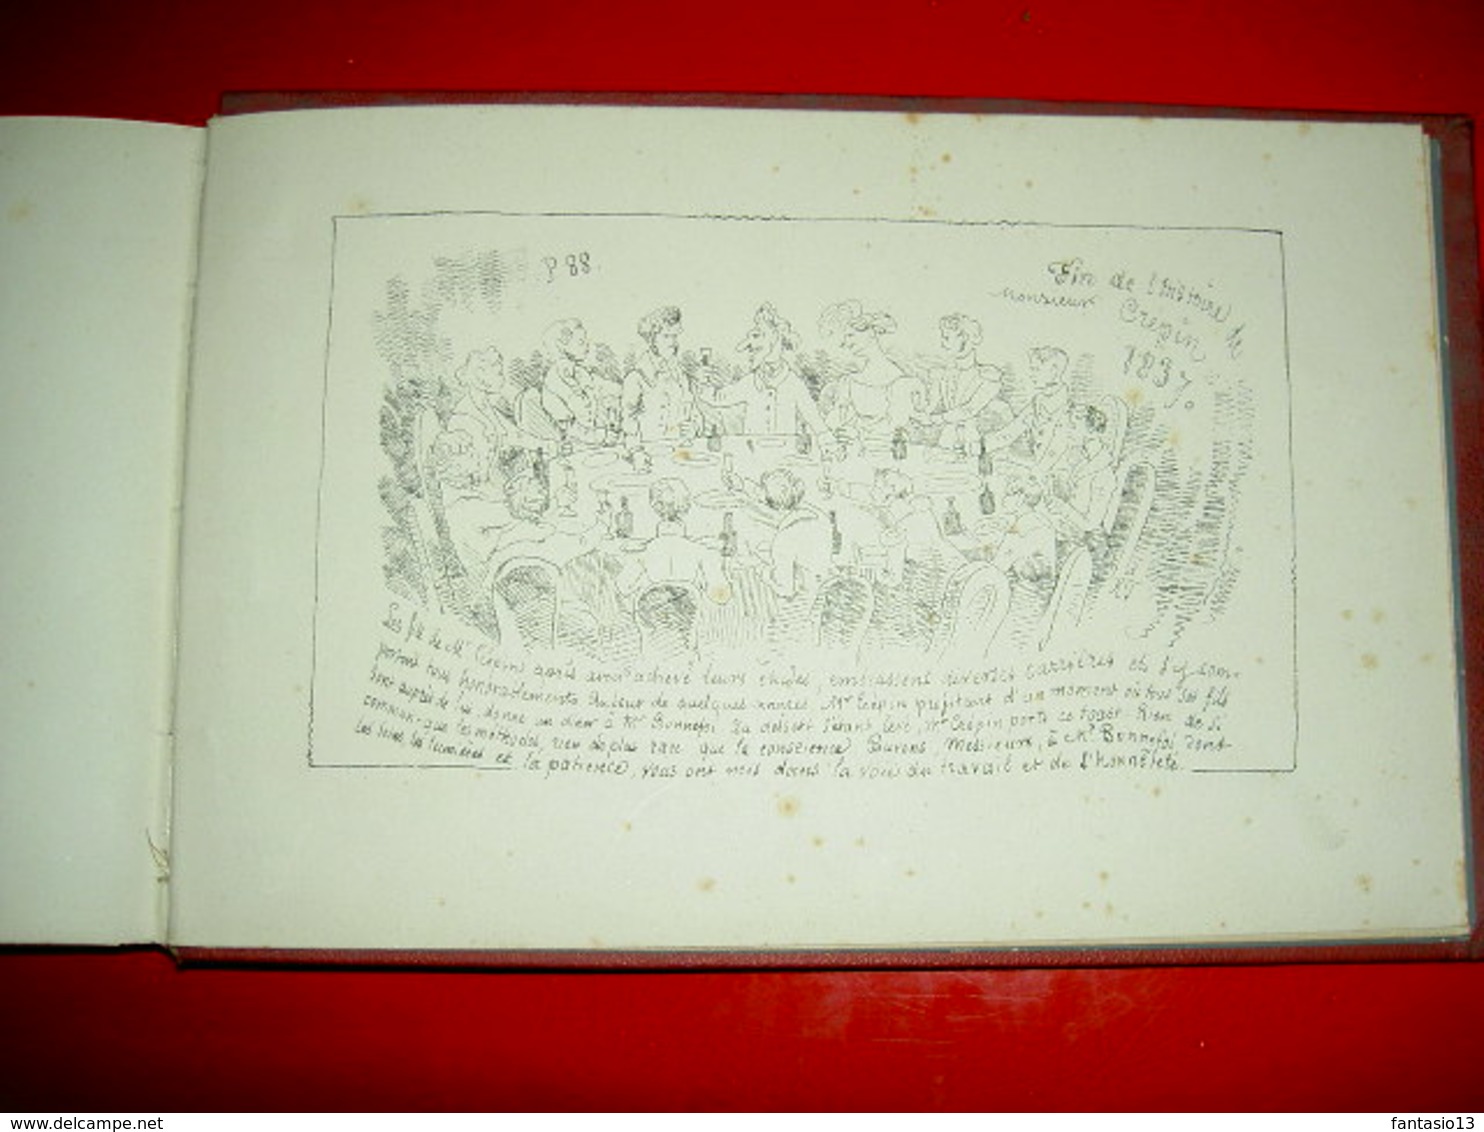 P 88.
Fin de l'histoire de
monsieur Crépin
1837.
Les fils de Mr Crépin après avoir achevé leurs études, embrassent diverses carrières et s'y com-
portent tous honorablement. Au bout de quelques années, Mr Crépin profitant d'un moment où tous ses fils
sont auprès de lui, donne un dîner à Mr Bonnefoi. Au dessert s'étant levé, Mr Crépin porte ce toast: Rien de si
commun que les méthodes, rien de plus rare que la conscience. Buvons, Messieurs, à Mr Bonnefoi, dont
les soins, les lumières et la patience, vous ont mis dans la voie du travail et de l'honnêteté.
www.delcampe.net
fantasio13